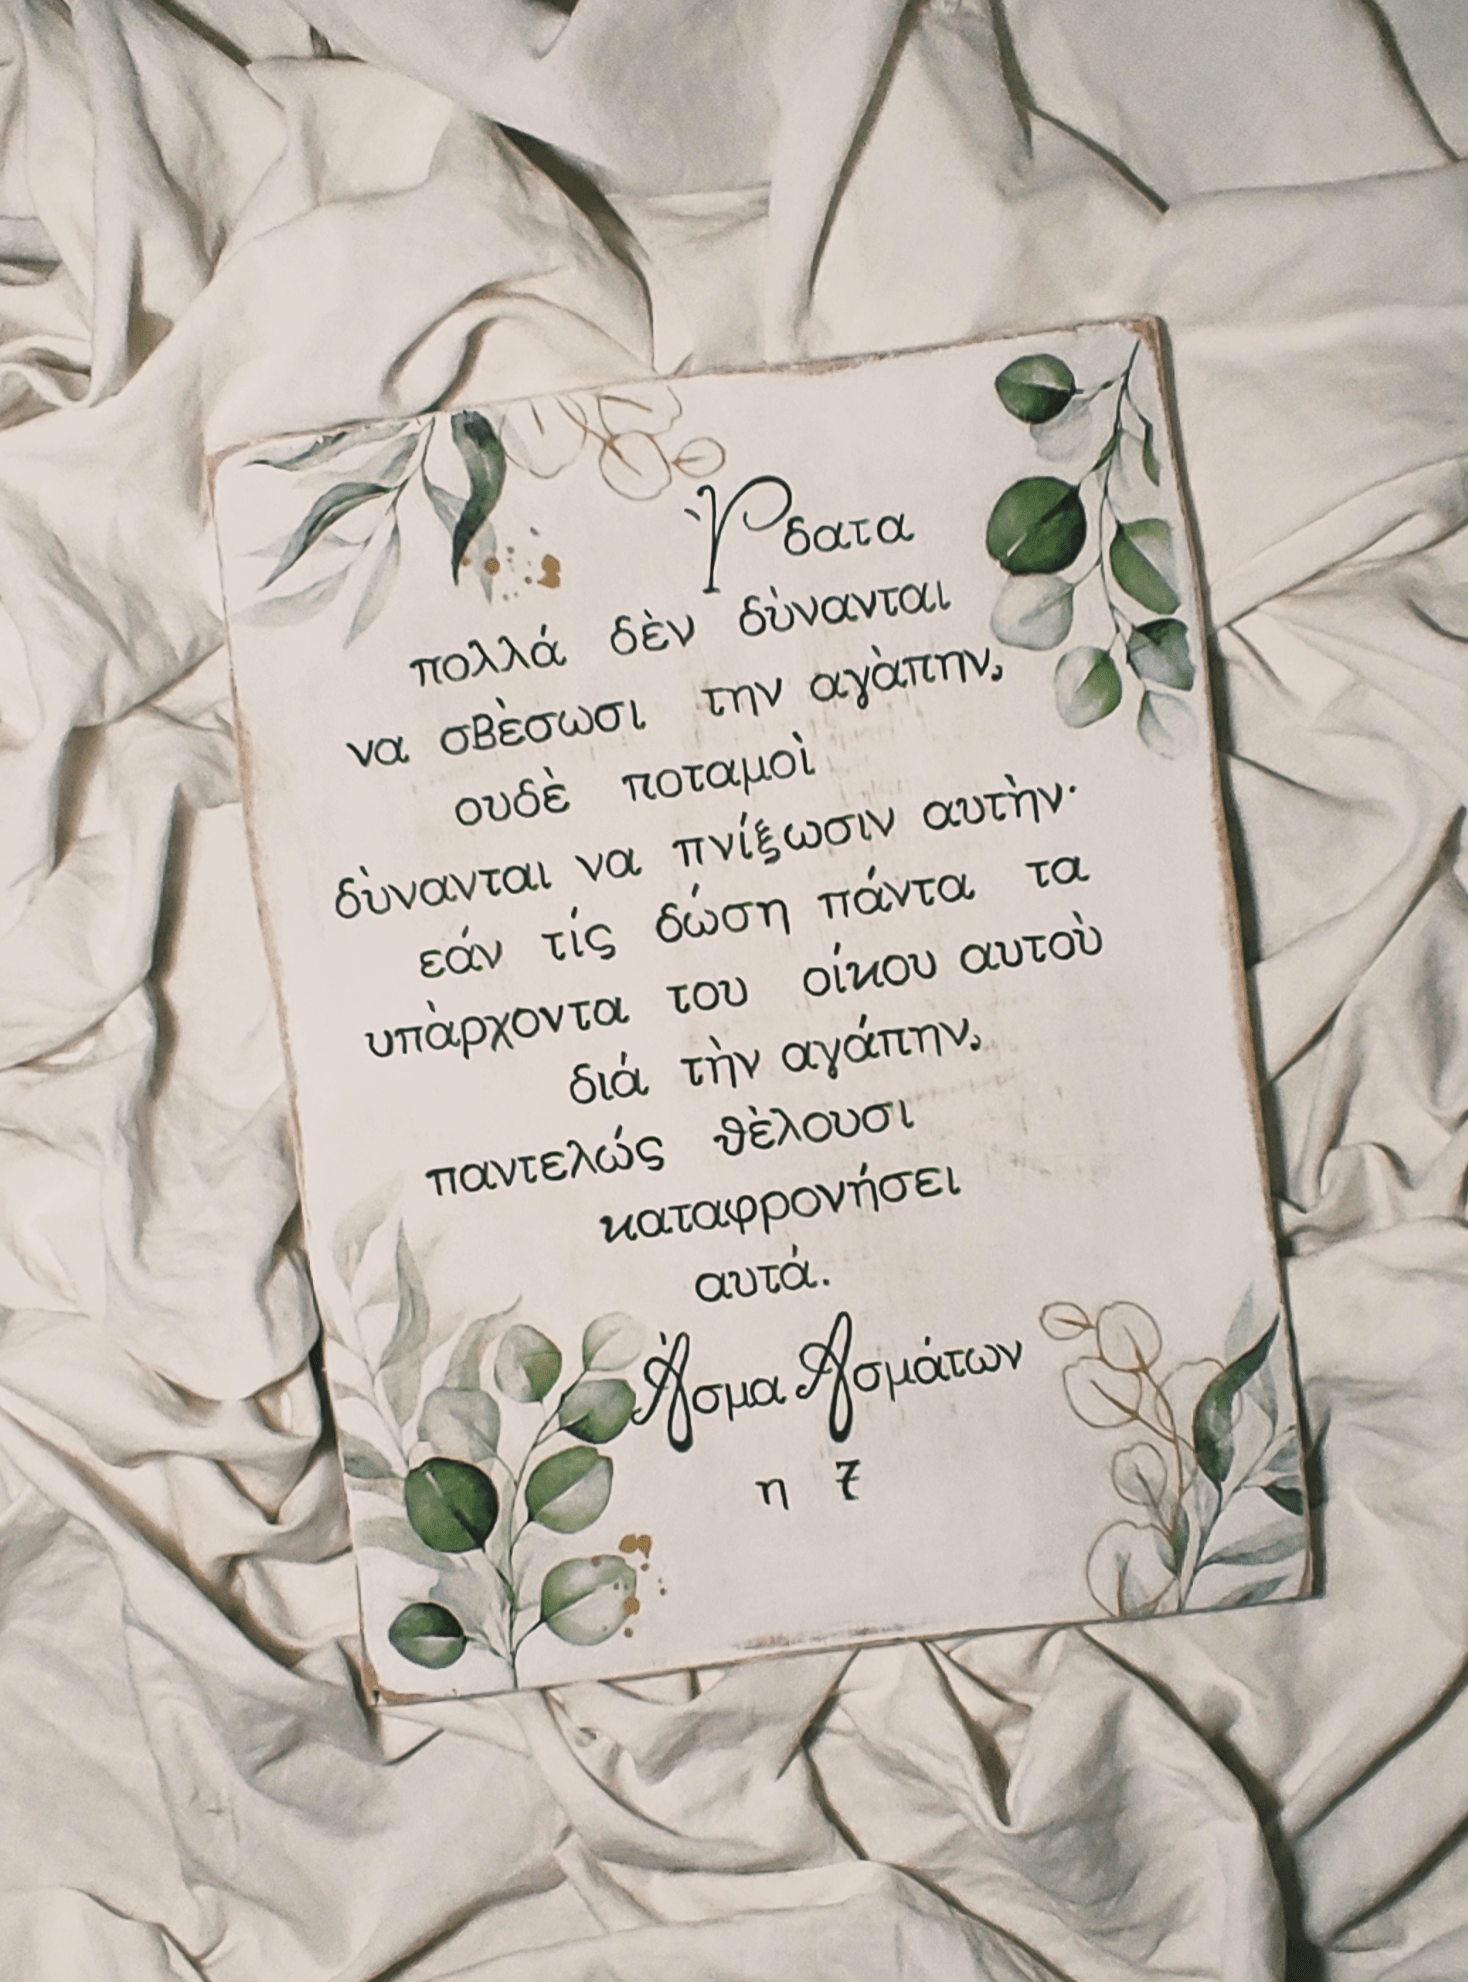 Ὑδατα
πολλά δὲν δὺνανται
να σβὲσωσι την αγὰπην,
ουδὲ ποταμοὶ
δὺνανται να πνίξωσιν αυτὴν·
εάν τίς δώση πάντα τα
υπὰρχοντα του οίκου αυτοὺ
διά τὴν αγάπην,
παντελώς θὲλουσι
καταφρονήσει
αυτά.
Άσμα Ασμάτων
η 7